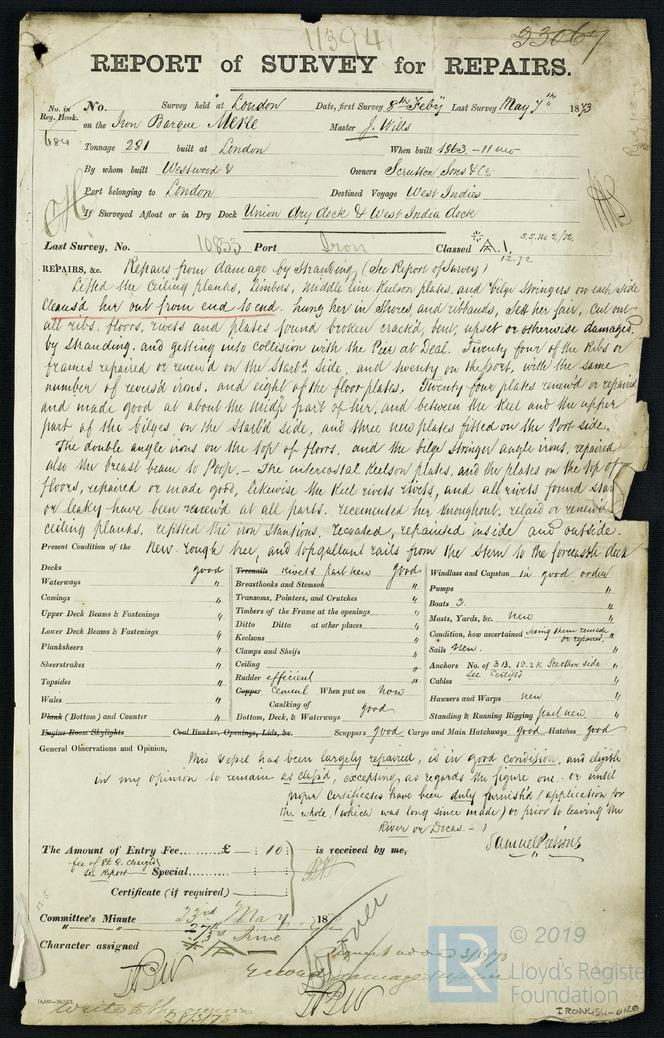 11394
33067
REPORT of SURVEY for REPAIRS.
No. in Reg. Book. 684
No. Survey held at London Date, first Survey 8th Feby Last Survey May 7th 1873
on the Iron Barque Merle Master J. Wills
Tonnage 281 built at London When built 1863 - 11 mo
By whom built Westwood & Owners Scrutton Sons & Co
Port belonging to London Destined Voyage West Indies
If Surveyed Afloat or in Dry Dock Union dry dock & West India dock
S.S. No 2/72
Last Survey, No. 10853 Port Iron Classed A.1.
12.72
REPAIRS, &c. Repairs from damage by Stranding (See Report of Survey)
Lifted the Ceiling planks, limbers, middle line Keelson plates, and bilge Stringers on each side
Cleans'd her out from end to end. hung her in Shores and ribbands, Sett her fair, Cut out
all ribs, floors, rivets and plates found broken cracked, bent, upset or otherwise damaged,
by Stranding, and getting into Collision with the Pier at Deal. Twenty four of the Ribs or
frames repaired or renew'd on the Starbd. Side, and twenty on the port, with the same
number of revers'd irons, and eight of the floor plates, Twenty four plates renew'd or repaired
and made good at about the midsp part of her, and between the Keel and the upper
part of the bilges, on the Starb'd side, and three new plates fitted on the Port side.
The double angle irons on the top of floors, and the bilge Stringer angle irons, repaired
also the breast beam to Poop, - The intercostal Keelson plates, and the plates on the top of
floors, repaired or made good, likewise the Keel rivets rivets, and all rivets found
or leaky have been renew'd at all parts. recemented her throughout, relaid or renew'd
ceiling planks, refitted the iron Stantions, recoated, repainted inside and outside.
Present Condition of the New rough tree, and topgallant rails from the Stern to the forecastle deck
Decks good
Waterways "
Comings "
Upper Deck Beams & Fastenings "
Lower Deck Beams & Fastenings "
Planksheers "
Sheerstrakes "
Topsides "
Wales "
Plank (Bottom) and Counter "
Engine Room Skylights
Treenails Rivets part new good
Breasthooks and Stemson "
Transoms, Pointers, and Crutches "
Timbers of the Frame at the openings "
Ditto Ditto at other places "
Keelsons "
Clamps and Shelfs "
Ceiling "
Rudder efficient
Copper Cement When put on now
Caulking of
Bottom, Deck, & Waterways good
Coal Bunker, Openings, Lids, &c.
Windlass and Capstan in good order
Pumps "
Boats 3. "
Masts, Yards, &c. new "
Condition, how ascertained Seeing them remade or repaired.
Sails New. "
Anchors No. of 3 B, 1S. 2K See other side "
Cables See Certifs "
Hawsers and Warps new "
Standing & Running Rigging part new "
Scuppers good Cargo and Main Hatchways good Hatches good
General Observations and Opinion,
This Vessel has been largely repaired, is in good condition, and eligible
in my opinion to remain as class'd, excepting as regards the figure one - or until
proper certificates have been duly furnish'd (application for
the whole, (which was long since made) or prior to leaving the
River or Docks. - )
The Amount of Entry Fee.........£ : 10 : is received by me,
Special
See Report
Certificate (if required)
Committee's Minute 23rd May 18
" " 27th
Character assigned
Over
3/6/73
© 2019
LR
Lloyd's Register
Foundation
IRON454-0120